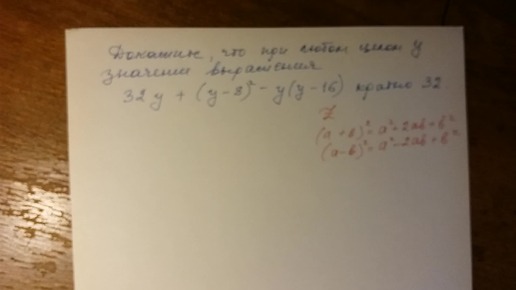 Докажите, что при любом целом y
значении выражения
32 y + (y-8)² - y(y-16) кратно 32.
7
(a + b)² = a² + 2ab + b²
(a-b)² = a² - 2ab + b²